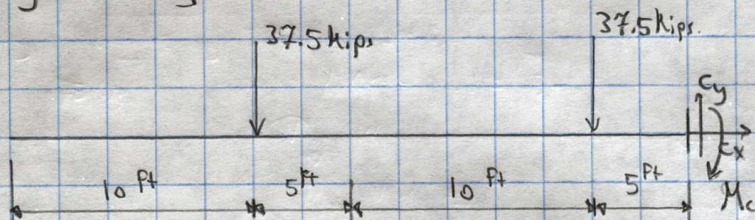 37.5 kips
37.5 kips.
Cy
Cx
10 ft
5 ft
10 ft
5 ft